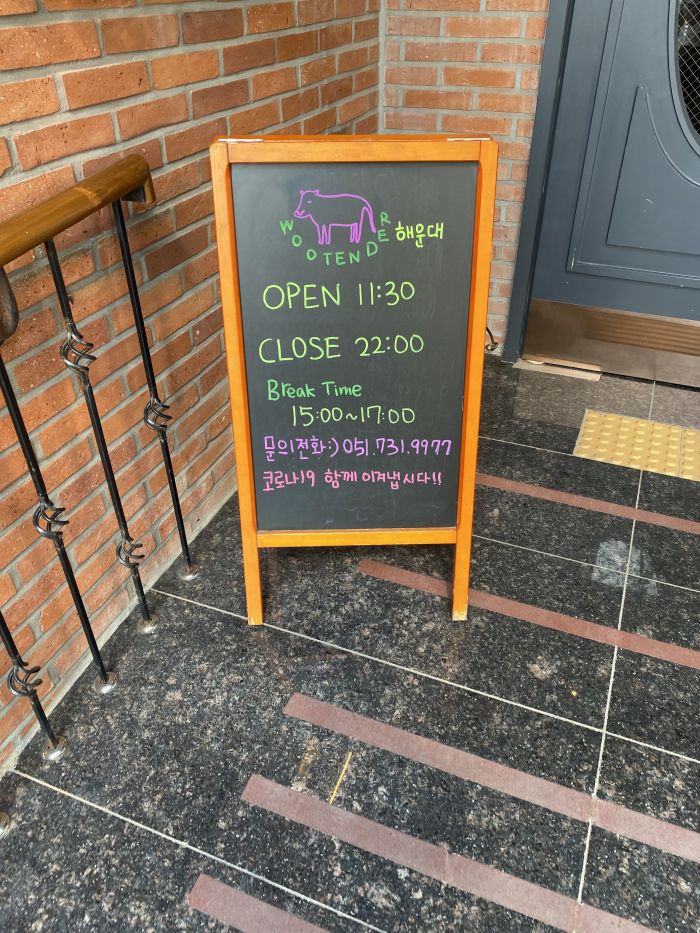 WOOTENDER 해운대
OPEN 11:30
CLOSE 22:00
Break Time
15:00~17:00
문의전화:) 051.731.9977
코로나19 함께 이겨냅시다!!